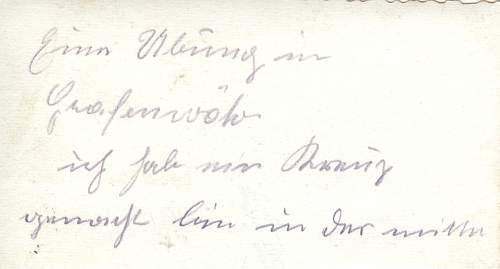 Eine Übung in
Grafenwöhr
ich hab ein Kreuz
gemacht bin in der mitte